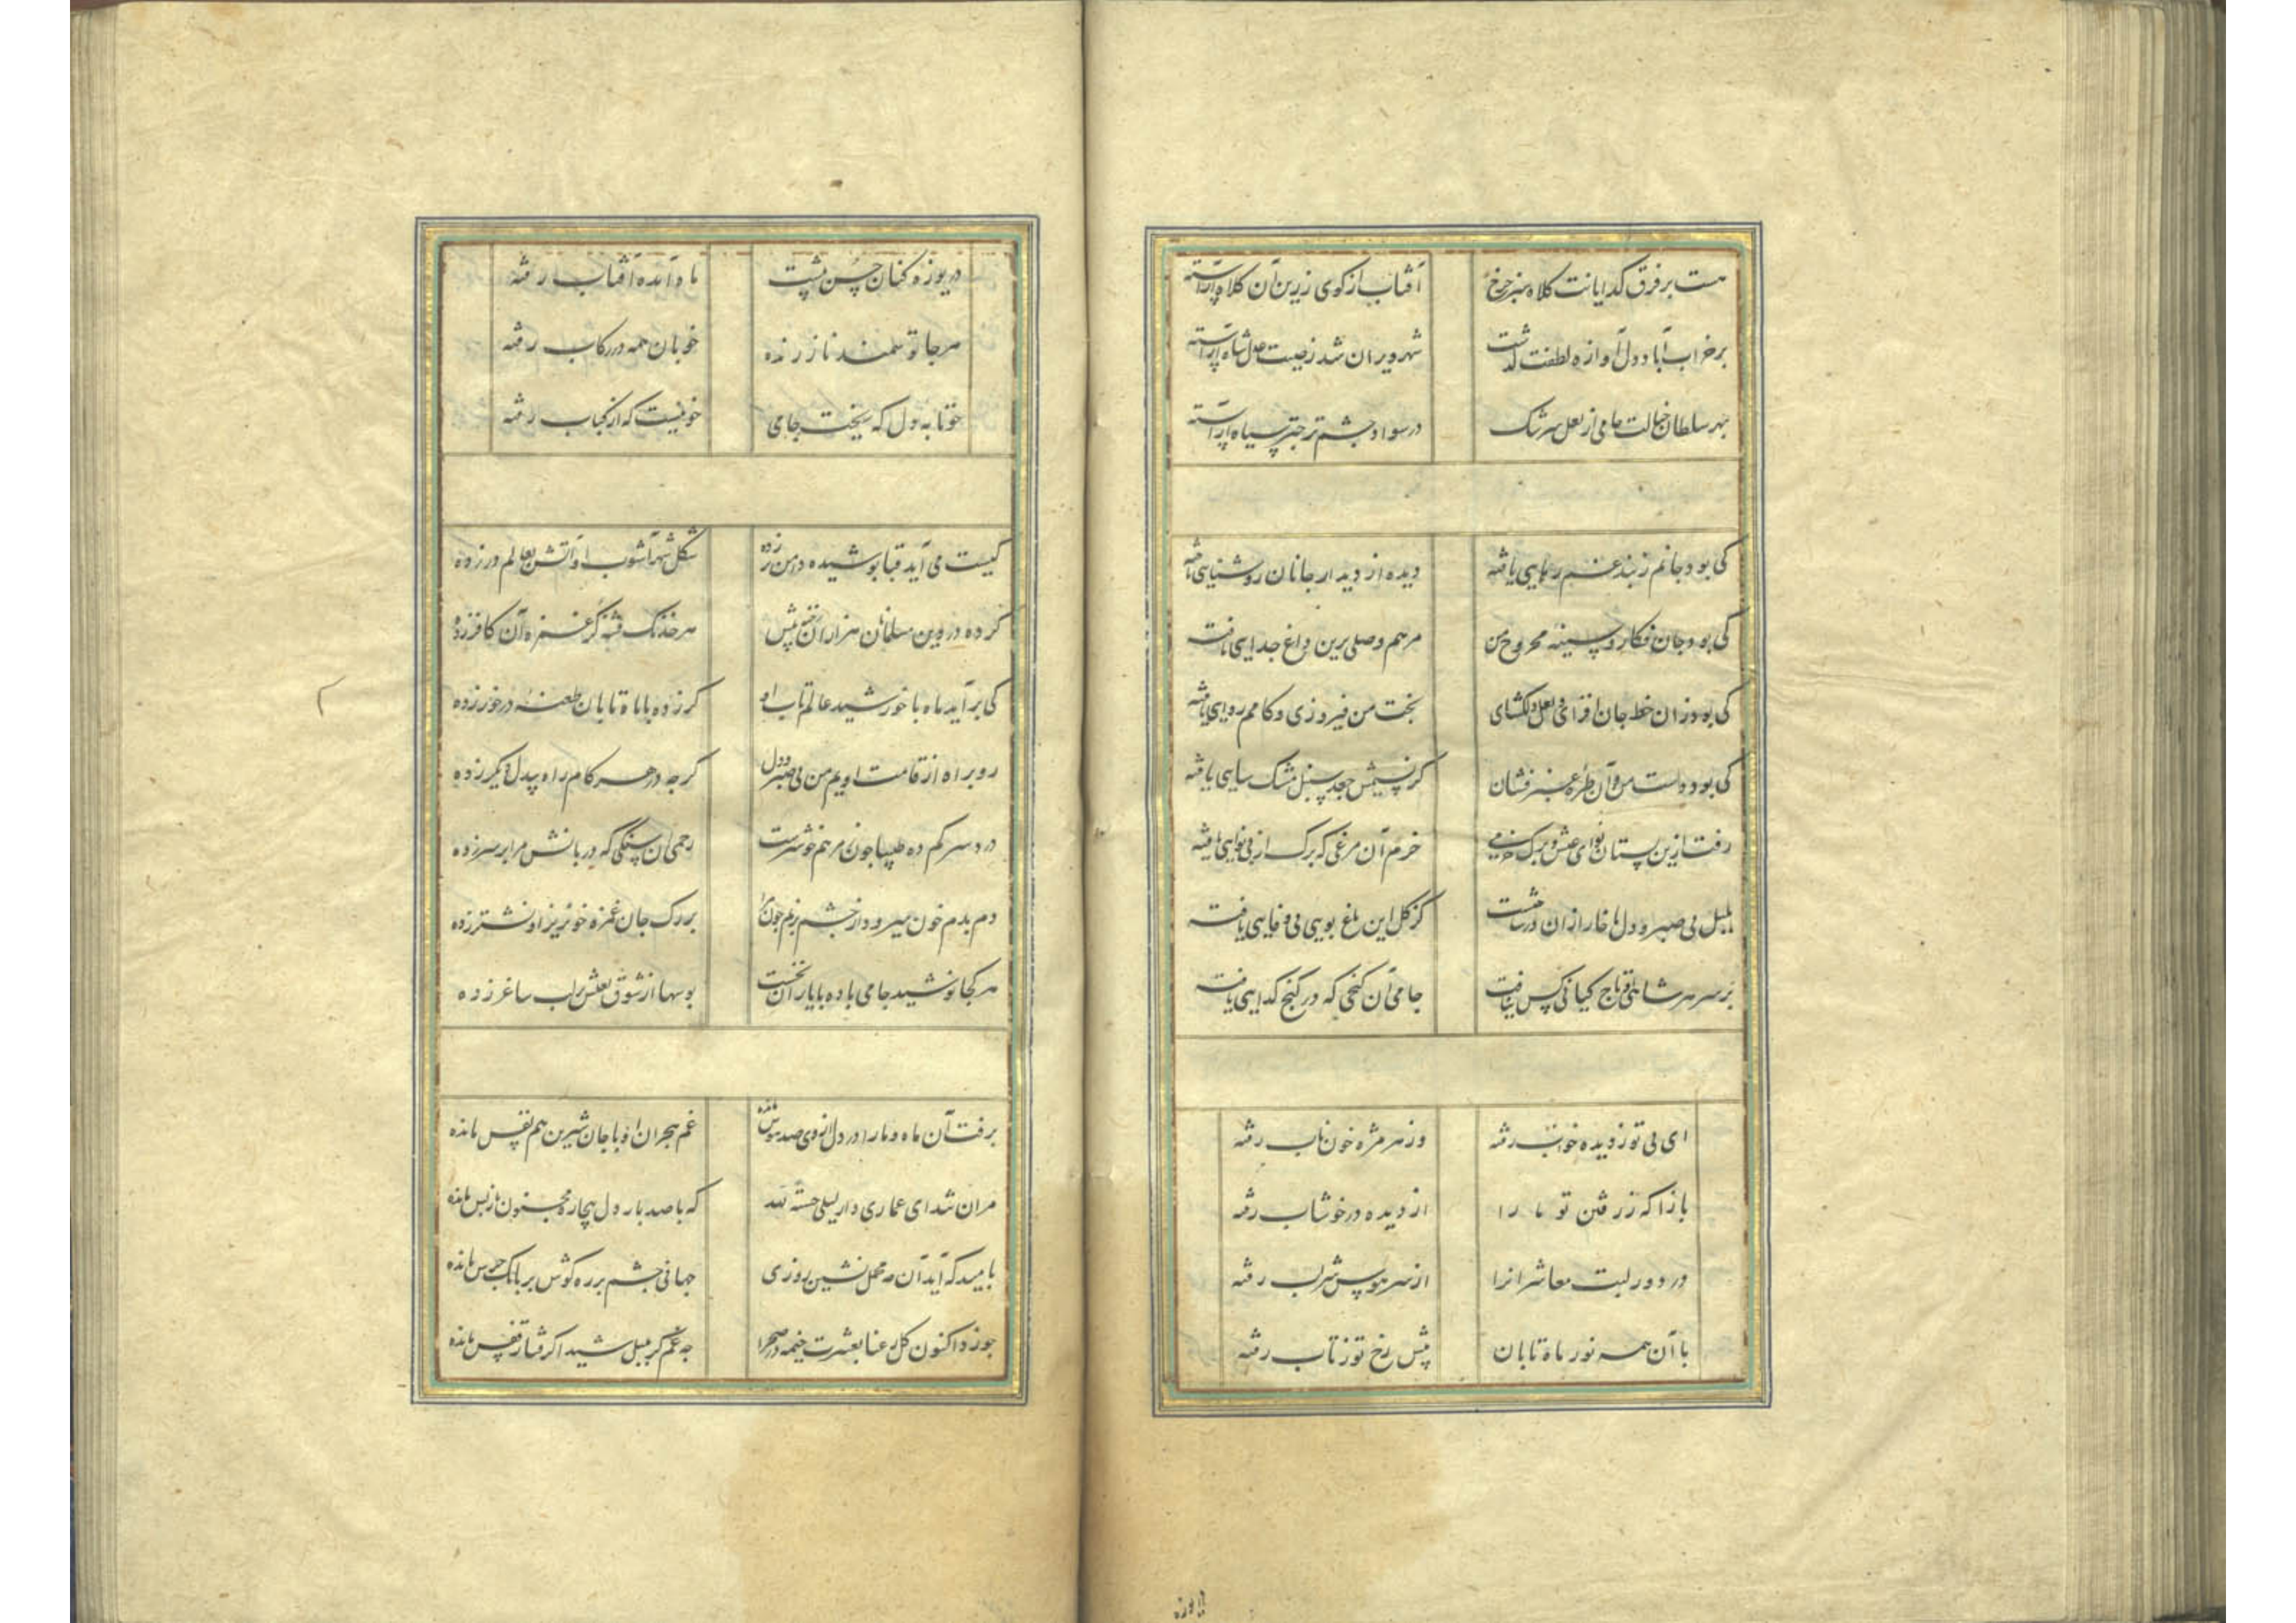 هست بر فرق کدایانت کلاه سبز چرخ آفتاب از کوی زرین آن کلاه آراسته
بر خراب آباد دل آوازه لطفت گذشت شهر ویران شد ز صیت عدل شاه آراسته
بهر سلطان خیالت جامی از لعل سرشک در سواد چشم تر چتر سیاه آراسته
کی بود جانم ز بند غم رهایی یافته دیده از دیدار جانان روشنایی یافته
کی بود جان فکار و سینه مجروح من مرهم وصلی برین داغ جدایی یافته
کی بود زان خط جان افزای و لعل دلکشای بخت من فیروزی و کامم روایی یافته
کی بود دست من و آن طره عنبر فشان کز نسیمش جعد سنبل مشک سایی یافته
رفت ازین بستان نوای عیش و برک خرمی خرم آن مرغی که برک از بی نوایی یافته
بلبل بی صبر و دل را خار ازان در پا شکست کز کل این باغ بویی بی وفایی یافته
بر سر هر شاهی و تاج کیانی کس نیافت جامی آن کنجی که در کنج کدایی یافته
ای بی تو ز دیده خواب رفته وز هر مژه خون ناب رفته
بازآ که ز رفتن تو ما را از دیده در خوشاب رفته
در دور لبت معاشرانرا از سر هوس شراب رفته
با آن همه نور ماه تابان پیش رخ تو ز تاب رفته
دریوزه
دریوزه کنان حسن پیشت ماه آمده آفتاب رفته
هر جا تو سمند ناز رانده خوبان همه در رکاب رفته
خونابه دل که ریخت جامی خونیست که از کباب رفته
کیست می آید قبا پوشیده دامن بر زده شکل شهر آشوب او آتش بعالم در زده
کرده در دین مسلمانان هزاران رخنه بیش هر خدنک فتنه کز غمزه آن کافر زده
کی برآید ماه با خورشید عالمتاب او کر زده با ماه تابان طعنه در خور زده
روبراه از قامت اویم من بی صبر و دل کرچه در هر کام راه بیدلی دیکر زده
درد سر کم ده طبیبا چون ز مرهم خوشترست زخم آن سنکی که دربانش مرا بر سر زده
دم بدم خون میرود از چشم بر رخم چون مرا بر رک جان غمزه خونریز او نشتر زده
هر کجا نوشیده جامی باده با یاران نخست بوسها از شوق لعلش بر لب ساغر زده
برفت آن ماه و ما را در دل از وی صد هوس مانده غم هجران او با جان شیرین هم نفس مانده
مران تند ای عماری دار لیلی خسته شد که با صد بار دل بیچاره مجنون باز پس مانده
بامید که آید آن مه محمل نشین روزی جهانی چشم بر ره کوش بر بانک جرس مانده
چو زد اکنون کل رعنا بعشرت خیمه در صحرا چه غم کر بلبل شیدا کرفتار قفس مانده